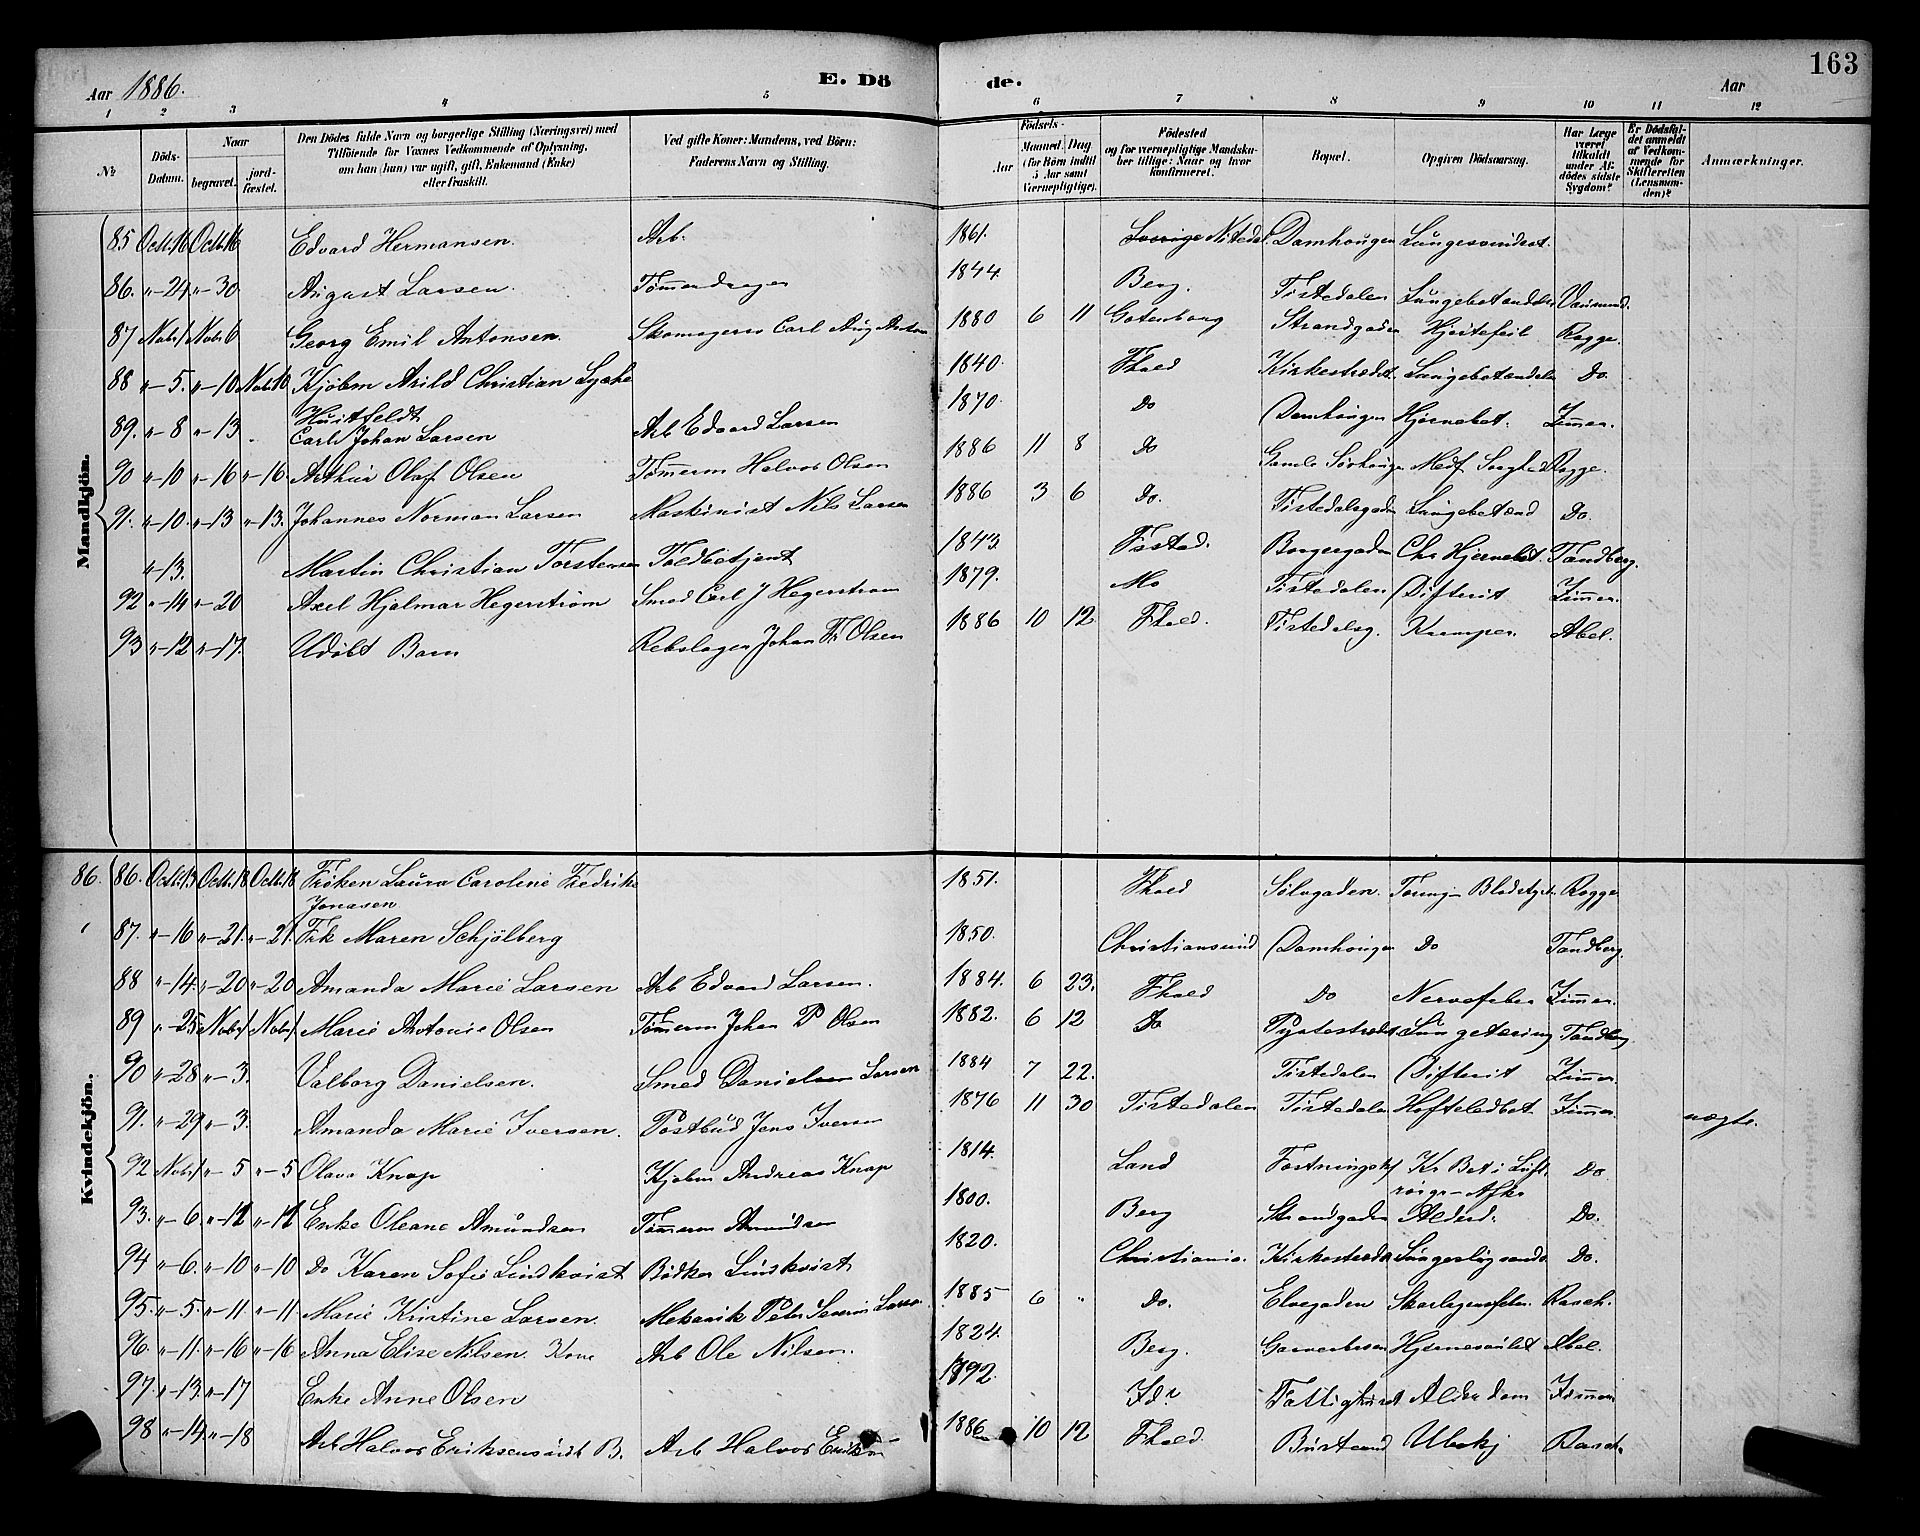 163
Aar 1886. E. Dö de. Aar
1 2 3 4 5 6 7 8 9 10 11 12
№
Döds-Datum.
Naar
begravet. jord-fæstet.
Den Dödes fulde Navn og borgerlige Stilling (Næringsvei) med Tilföiende for Voxnes Vedkommende af Oplysning, om han (hun) var ugift, gift, Enkemand (Enke) eller fraskilt.
Ved gifte Koner: Mandens, ved Börn: Faderens Navn og Stilling.
Födsels-
Aar
Maaned. Dag
(for Börn indtil 5 Aar samt Værnepligtige).
Födested og for værnepligtige Mandskaber tillige: Naar og hvor konfirmeret.
Bopæl.
Opgiven Dödsaarsag.
Har Læge været tilkaldt under Afdödes sidste Sygdom?
Er Dödsfaldet anmeldt af Vedkommende for Skifteretten (Lensmanden)?
Anmærkninger.
Mandkjön.
85 Octb. 16 Octb. 16 Edvard Hermansen. Arb. 1861. Sverige Nitedal Damhougen Lungesvindsot.
86. " - 24 " - 30 August Larsen. Tømmerdrager 1844. Berg. Tistedalen Lungebetændelse
87 Nobr 1 Nobr 6 Georg Emil Antonsen. Skomagerens Carl Aug Anton 1880 6 11 Gotenborg Strandgaden Hjertefeil Rogge.
88 " - 5. " - 10. Nobr 10. Kjøbm Arild Christian Lyche Huitfeldt 1840. Fhald Kirkestrædet. Lungebetændelse Do.
89. " - 8 " - 13 Carl Johan Larsen Arb Edvard Larsen 1870. Do Damhougen Hjernebet. Zimmer.
90 " - 10 " - 16 " - 16 Arthur Olaf Olsen Tømerm Halvor Olsen 1886 11 8 Do Gamle Sørhougen Medf Svaghed Rogge.
91. " - 10. " - 13 " - 13. Johannes Norman Larsen Maskinist Nils Larsen 1886 3 6 Do. Tistedalsgaden Lungebetænd Do.
" - 13. Martin Christian Torstensen Toldbetjent 1843. Borgergaden Chr Hjernebet Tandberg.
92 " - 14 " - 20 Axel Hjalmar Hegerstrøm Smed Carl J Hegerstrøm 1879. Mo Tistedalen Difterit Zimmer.
93 " - 12 " - 17. Udøbt Barn Rebslager Johan Fr Olsen 1886 10 12 Fhald. Tistedalsg. Kramper. Abel.
Kvindekjön.
86. 86. Octb. 13 Octb. 18 Octb. 18 Frøken Laura Caroline Fredrike Jonasen 1851. Fhald Sølvgaden. Rogge
87. " - 16 " - 21. " - 21. Frk Maren Schjølberg 1850. Christiansund Damhougen Do Tandberg.
88 " - 14. " - 20 " - 20 Amanda Marie Larsen Arb Edvard Larsen. 1884. 6 23. Fhald Do Nervefeber Zimmer.
89 " - 25 Nobr 1 Nobr 1. Marie Antonie Olsen Tømerm Johan P Olsen 1882. 6 12 Do Lungetæring Tandberg
90 " - 28 " - 3. Valborg Danielsen. Smed Danielsen Larsen 1884 7 22. Tistedalen Difterit Zimmer
91. " - 29 " - 3. Amanda Marie Iversen. Postbud Jens Iversen 1876 11 30 Tistedalen Tistedalen Hofteledbet Zimmer nægte.
92 Nobr 1 " - 5 " - 5 Olava Knap Kjøbm Andreas Knap 1814. Land Kr Bet i Luftrørgr - Afkr Do
93. " - 6. " - 12 " - 12 Enke Oleane Amundsen Tømerm Amundsen 1800. Berg Strandgaden Alderd. Do.
94 " - 6. " - 10 " - 10 Do Karen Sofie Lindkvist Bødker Lindkvist 1820. Christiania. Kirkestrædet Do.
95. " - 5. " - 11 " - 11. Marie Kristine Larsen. Mekanik Peter Severin Larsen. 1885 6 " Do. Elvegaden Skarlagensfeber Rasch.
96. " - 11. " - 16 " - 16 Anna Elise Nilsen. Kone Arb Ole Nilsen. 1824. Berg. Abel.
97. " - 13. " - 17 Enke Anne Olsen 1792. Id. Fattighuset Alderdom Zimmer
98 " - 14. " - 18 Arb Halvor Eriksens udøbt B. Arb Halvor Eriksen 1886 10 12 Fhald. Rasch.